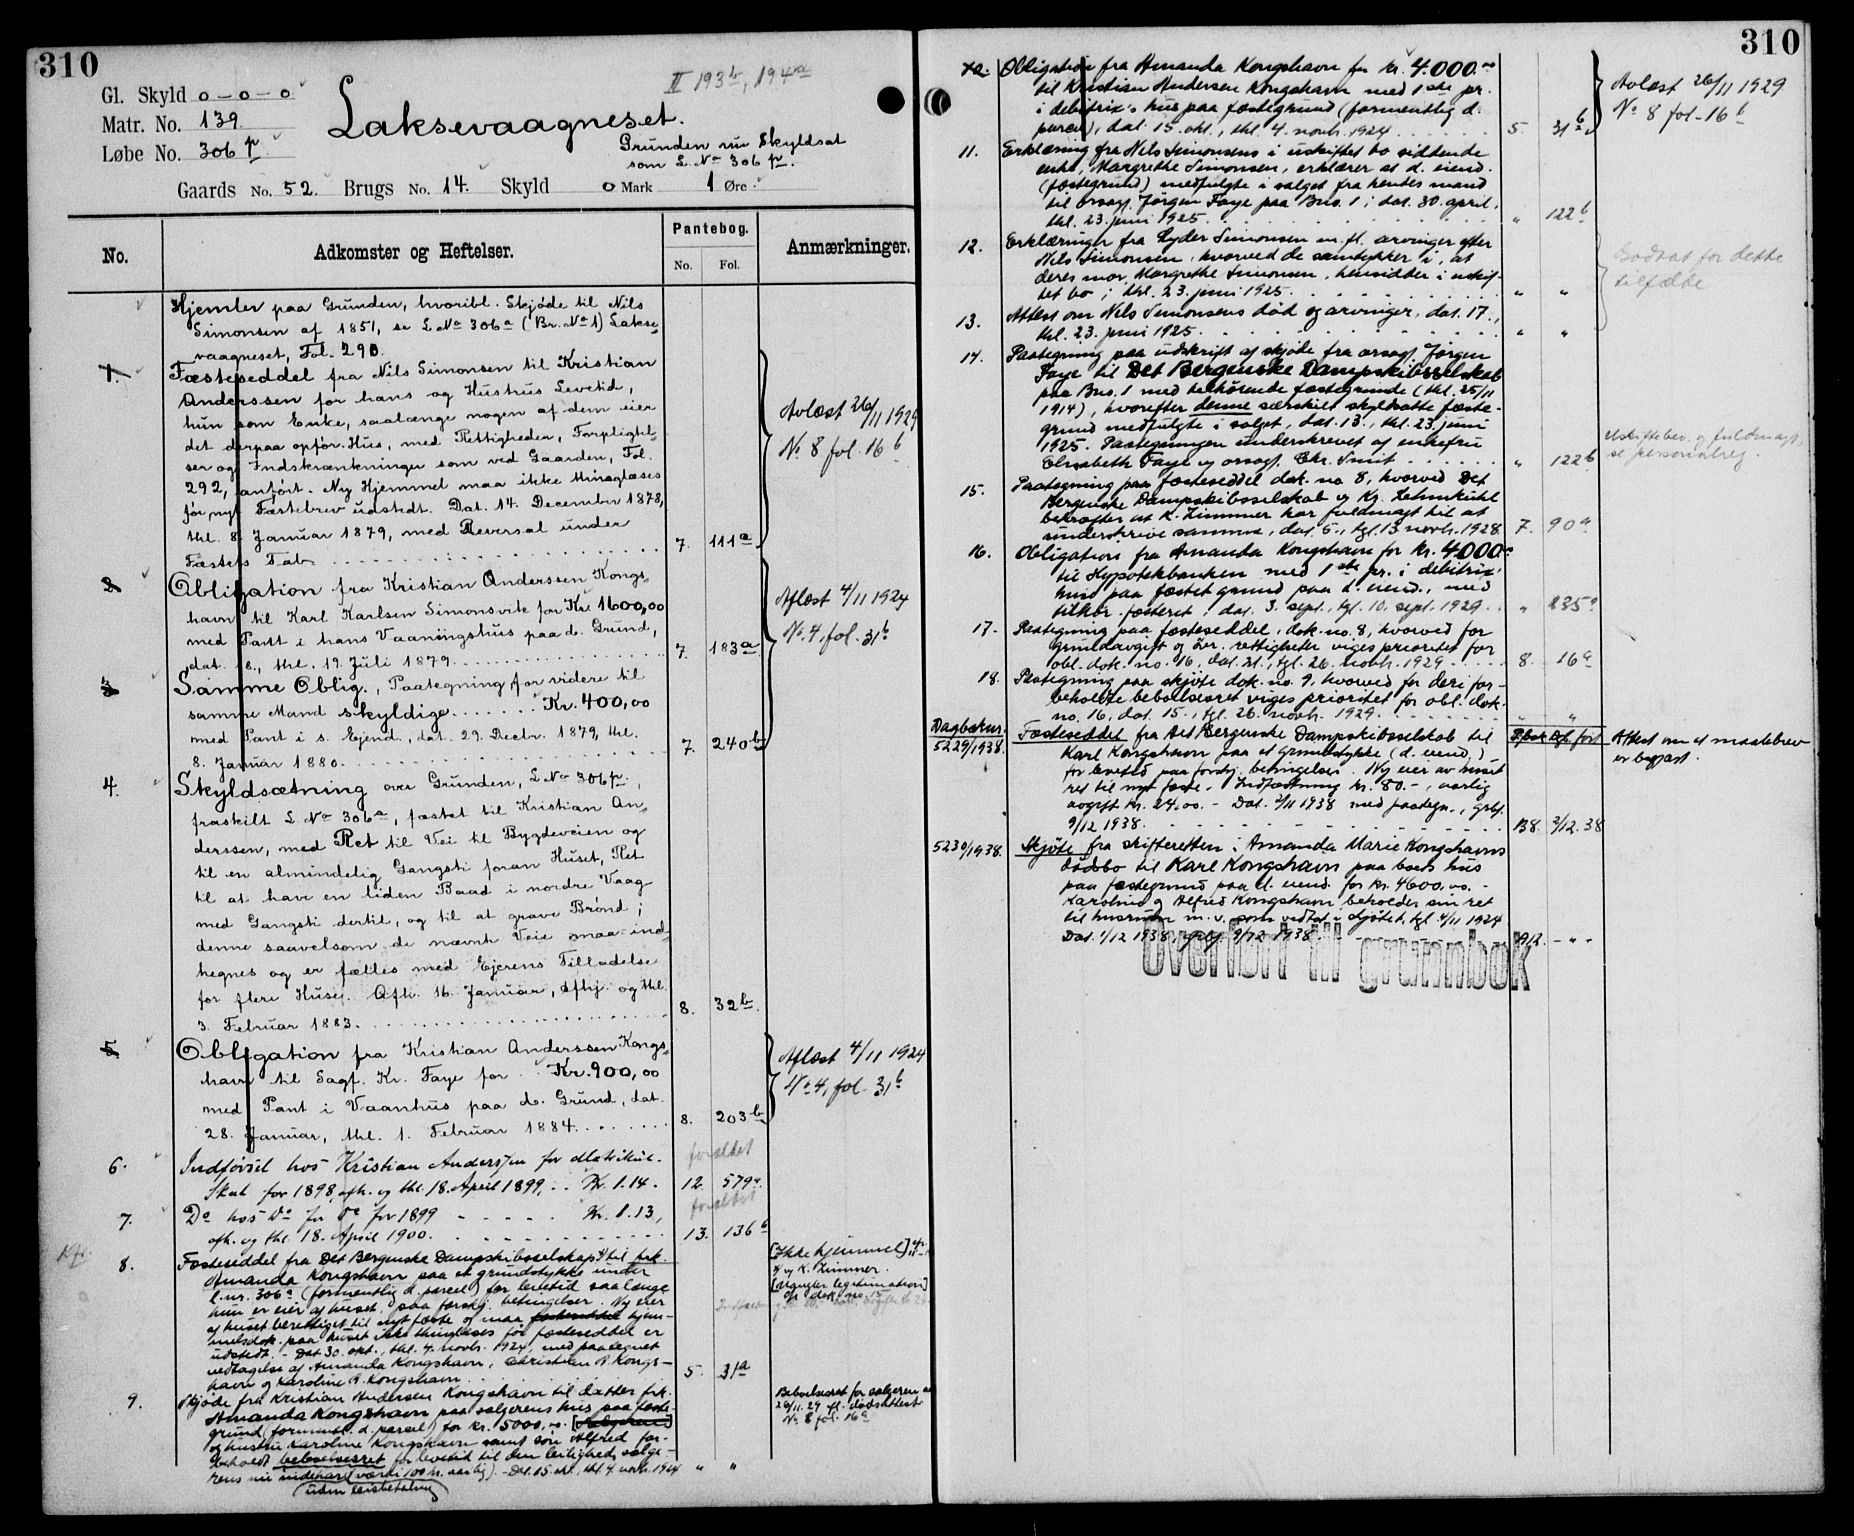 310
Gl. Skyld 0-0-0
Matr. No. 139.
Løbe No. 306 p.
II 193b, 194a
Laksevaagneset.
Grunden nu Skyldsat
som L No 306 p.
Gaards No. 52. Brugs No. 14. Skyld 0 Mark 1 Øre
No.
Adkomster og Heftelser.
Pantebog.
No. Fol.
Anmærkninger.
Hjemler paa Grunden, hvoribl. Skjøde til Nils
Simonsen af 1851, se L No 306a (Br. No 1) Lakse-
vaagneset, Fol. 290.
1. Fæsteseddel fra Nils Simonsen til Kristian
Anderssen for hans og Hustrus Levetid,
hun som Enke, saalænge nogen af dem eier
det derpaa opfør. Hus, med Rettigheder, Forpligtel-
ser og Indskrænkninger som ved Gaarden, Fol.
292, anført. Ny Hjemmel maa ikke thinglæses
før nyt Fæstebrev udstedt. Dat. 14. December 1878,
thl. 8. Januar 1879, med Reversal under
Fæstets Tab 7. 111a
Avlæst 26/11 1929
No 8 fol. 16b
2. Obligation fra Kristian Anderssen Kongs-
havn til Karl Karlsen Simonsvik for Kr. 1600,00
med Pant i hans Vaaningshus paa d. Grund,
dat. 18., thl. 19. Juli 1879. 7. 183a
Aflæst 4/11 1924
No. 4, fol. 31b
3. Samme Oblig., Paategning for videre til
samme Mand skyldige Kr. 400,00
med Pant i s. Ejend., dat. 29. Decbr. 1879, thl.
8. Januar 1880. 7. 240b
4. Skyldsætning over Grunden, L No 306p.,
fraskilt L No 306a, fæstet til Kristian An-
derssen, med Ret til Vei til Bygdeveien og
til en almindelig Gangsti foran Huset, Ret
til at have en liden Baad i nordre Vaag
med Gangsti dertil, og til at grave Brønd;
denne saavelsom de nævnte Veie maa ind-
hegnes og er fælles med Ejerens Tilladelse
for flere Huse. Afh. 16. Januar, afhj. og thl.
3. Februar 1883. 8. 32b
5. Obligation fra Kristian Anderssen Kongs-
havn til Sagf. Kr. Faye for Kr. 900,00
med Pant i Vaanhus paa d. Grund, dat.
28. Januar, thl. 1. Februar 1884. 8. 203b
Aflæst 4/11 1924
No 4, fol. 31b
6. Indførsel hos Kristian Anderssen for Matrikul-
Skat for 1898, afh. og thl. 18. April 1899, Kr. 1.14. 12. 579a
forældet
7. Do hos Do for Do for 1899 Kr. 1.13,
afh. og thl. 18. April 1900. 13. 136b
forældet
8. Fæsteseddel fra Det Bergenske Dampskibsselskap til frk.
Amanda Kongshavn paa et grundstykke under
l.nr. 306a (formentlig d. parcel) for levetid saalænge
hun er eier af huset, paa forskj. betingelser. Ny eier
af huset berettiget til nyt fæste og maa hjem-
melsdok. paa huset ikke thinglæses før fæsteseddel er
udstedt. - Dat. 30. okt., thl. 4. novbr. 1924, med paategnet
vedtagelse af Amanda Kongshavn, Christian A. Kongs-
havn og Karoline A. Kongshavn 5. 31a
[Ikke hjemmel]
K. Zimmer.
[Mangler legitimation]
cfr. dok. no. 15
9. Skjøde fra Kristian Andersen Kongshavn til datter frk.
Amanda Kongshavn paa sælgerens hus paa fæste-
grund (forment. d. parsel) for kr. 5000,00.
og hustru Karoline Kongshavn samt søn Alfred for-
beholdt beboelsesret for levetid til den leilighed sælge-
rens nu indehar (værdi 100 kr. aarlig). - Dat. 15. okt., thl. 4. novbr. 1924 " "
(uden leiebetaling)
Beboelsesret for sælgeren
26/11.29 fl. dødsattest
No 8 fol. 16a
310
10. Obligation fra Amanda Kongshavn for kr. 4.000.00
til Kristian Andersen Kongshavn med 1ste pr.
i debitrix's hus paa fæstegrund (formentlig d.
parcel), dat. 15. okt., thl. 4. novbr. 1924 5 31b
Avlæst 26/11 1929
No 8 fol. 16b
11. Erklæring fra Nils Simonsens i uskiftet bo siddende
enke, Margrethe Simonsen, erklærer at d. eiend.
(fæstegrund) medfulgte i salget fra hendes mand
til orsagf. Jørgen Faye paa Bno. 1; dat. 30. april,
thl. 23. juni 1925 " 122b
12. Erklæringer fra Lyder Simonsen m. fl. arvinger efter
Nils Simonsen, hvorved de samtykker i, at
deres mor, Margrethe Simonsen, hensidder i uskif-
tet bo; thl. 23. juni 1925. " "
Godtat for dette
tilfælde
13. Attest om Nils Simonsens død og arvinger, dat. 17.,
thl. 23. juni 1925. " "
14. Paategning paa udskrift af skjøde fra orsagf. Jørgen
Faye til Det Bergenske Dampskibsselskab
paa Bno. 1 med tilhørende fæstegrunde (thl. 25/11
1914), hvorefter denne særskilt skyldsatte fæste-
grund medfulgte i salget, dat. 13., thl. 23. juni
1925. Paategningen underskrevet af enkefru
Elisabeth Faye og orsagf. Chr. Smit " 122b
Uskiftebev. og fuldmagt,
se personalreg.
15. Paategning paa fæsteseddel dok. no 8, hvorved Det
Bergenske Dampskibsselskab og Kr. Lehmkuhl
bekræfter at K. Zimmer har fuldmagt til at
underskrive samme, dat. 5., tgl. 13 novbr. 1928 7. 90a
16. Obligation fra Amanda Kongshavn for kr. 4000.-
til Hypotekbanken med 1ste pr. i debitrix'
hus paa fæstet grund paa d. eiend., med
tilhør. fæsteret; dat. 3. sept., tgl. 10. sept. 1929. " 235a
17. Paategning paa fæsteseddel, dok. no. 8, hvorved for
grundavgift og øvr. rettigheter viges prioritet for
obl. dok. no. 16, dat. 21., tgl. 26. novbr. 1929 8. 16a
18. Paategning paa skjøte dok. no. 9, hvorved for deri for-
beholdte beboelsesret viges prioritet for obl. dok.
no. 16, dat. 15., tgl. 26. novbr. 1929. " "
Dagboknr.
5229/1938. Fæsteseddel fra Det Bergenske Dampskibsselskab til
Karl Kongshavn paa et grundstykke (d. eiend.)
for levetid paa forskj. betingelser. Ny eier av huset
ret til nyt fæste. Indfæstning kr. 80.-, aarlig
avgift kr. 24,00. - Dat. 2/11 1938 med paategn., grbf.
9/12 1938. B8. 2/12.38
Attest om at maalebrev
er begjært.
5230/1938. Skjøte fra skifteretten i Amanda Marie Kongshavns
dødsbo til Karl Kongshavn paa boets hus
paa fæstegrund paa d. eiend. for kr. 4600,00. -
Karoline og Alfred Kongshavn beholder sin ret
til husrum m.v. som vedtat i skjøtet, tgl. 4/11 1924
Dat. 1/12 1938, grbf. 9/12 1938 - " -
Overført til grunnbok